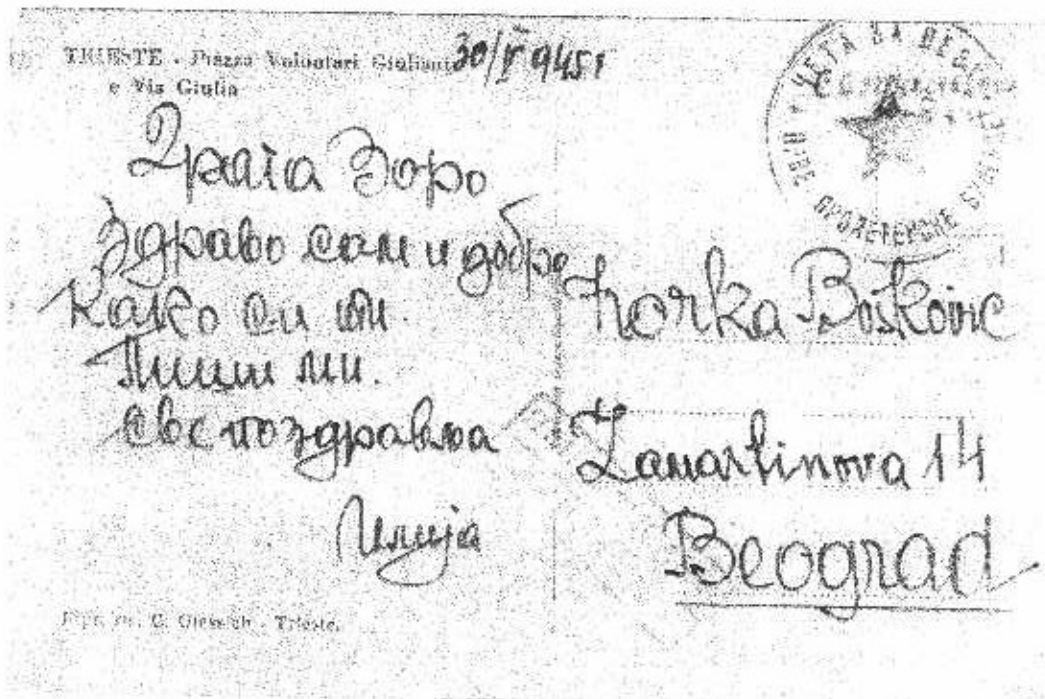 TRIESTE - Piazza Volontari Giuliani 30/V 945 г
e Via Giulia
ЧЕТА ЗА
ПРОЛЕТЕРСКЕ
Драга Зоро
Здраво сам и добро
Како си ти.
Пиши ми.
Све поздравља
Илија
Zorka Bošković
Lamartinova 14
Beograd
Trieste.